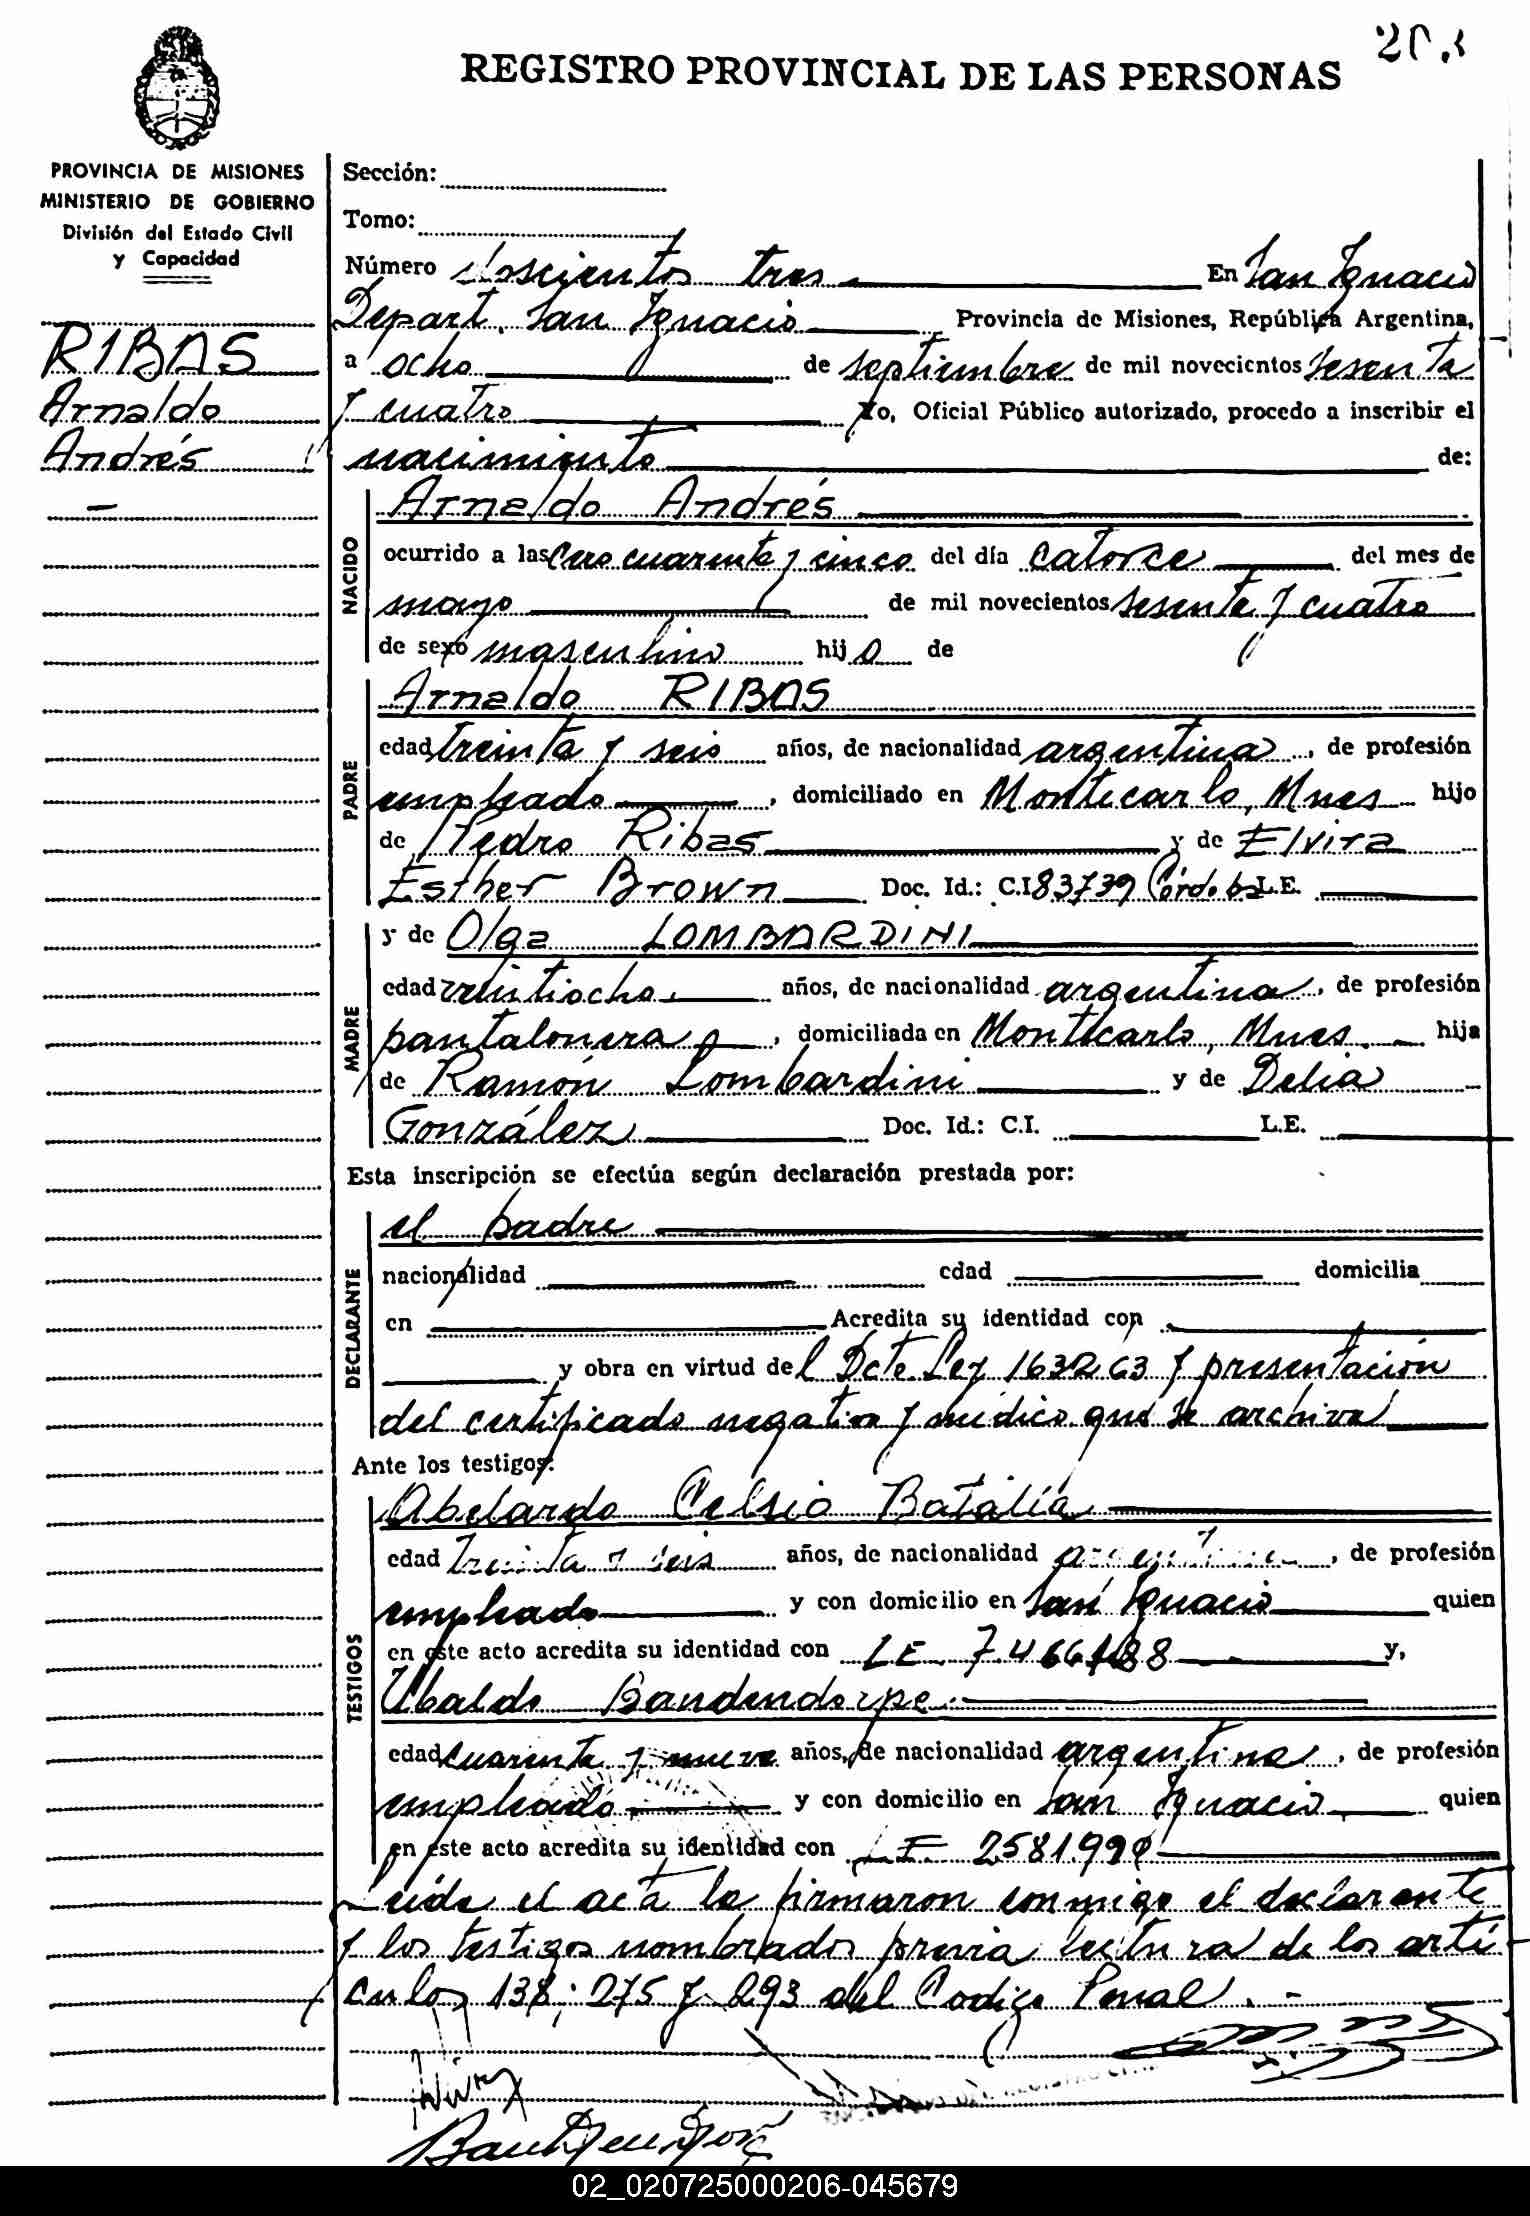 203
REGISTRO PROVINCIAL DE LAS PERSONAS
PROVINCIA DE MISIONES
MINISTERIO DE GOBIERNO
División del Estado Civil
y Capacidad
RIBAS
Arnaldo
Andrés
Sección:
Tomo:
Número doscientos tres En San Ignacio
Depart. San Ignacio Provincia de Misiones, República Argentina,
a ocho de septiembre de mil novecientos sesenta
y cuatro Yo, Oficial Público autorizado, procedo a inscribir el
nacimiento de:
NACIDO
Arnaldo Andrés
ocurrido a las cero cuarenta y cinco del día catorce del mes de
mayo de mil novecientos sesenta y cuatro
de sexo masculino hijo de
PADRE
Arnaldo RIBAS
edad treinta y seis años, de nacionalidad argentina, de profesión
empleado, domiciliado en Montecarlo, Mnes hijo
de Pedro Ribas y de Elvira
Esther Brown Doc. Id.: C.I 83739 Córdoba L.E.
MADRE
y de Olga LOMBARDINI
edad veintiocho años, de nacionalidad argentina, de profesión
pantalonera, domiciliada en Montecarlo, Mnes. hija
de Ramón Lombardini y de Delia
González Doc. Id.: C.I. L.E.
Esta inscripción se efectúa según declaración prestada por:
DECLARANTE
el padre
nacionalidad edad domicilia
en Acredita su identidad con
y obra en virtud del Dcte. Ley 1632.63 y presentación
del certificado negativo y médico que se archiva
Ante los testigos:
TESTIGOS
Abelardo Celsio Batalía
edad treinta y seis años, de nacionalidad argentina, de profesión
empleado y con domicilio en San Ignacio quien
en este acto acredita su identidad con L.E. y,
Ubaldo Bandendorpe
edad cuarenta y nueve años, de nacionalidad argentina, de profesión
empleado y con domicilio en San Ignacio quien
en este acto acredita su identidad con L.E.
Leída el acta la firmaron conmigo el declarante
y los testigos nombrados previa lectura de los artí
culos 138; 275 y 293 del Codigo Penal.-
02_020725000206-045679